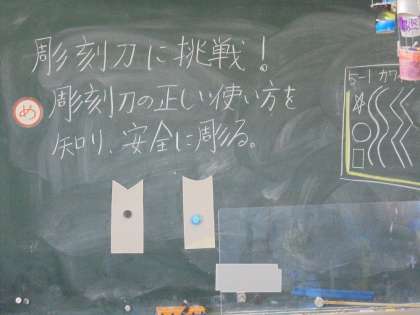 彫刻刀に挑戦!
め
彫刻刀の正しい使い方を
知り、安全に彫る。
5-1